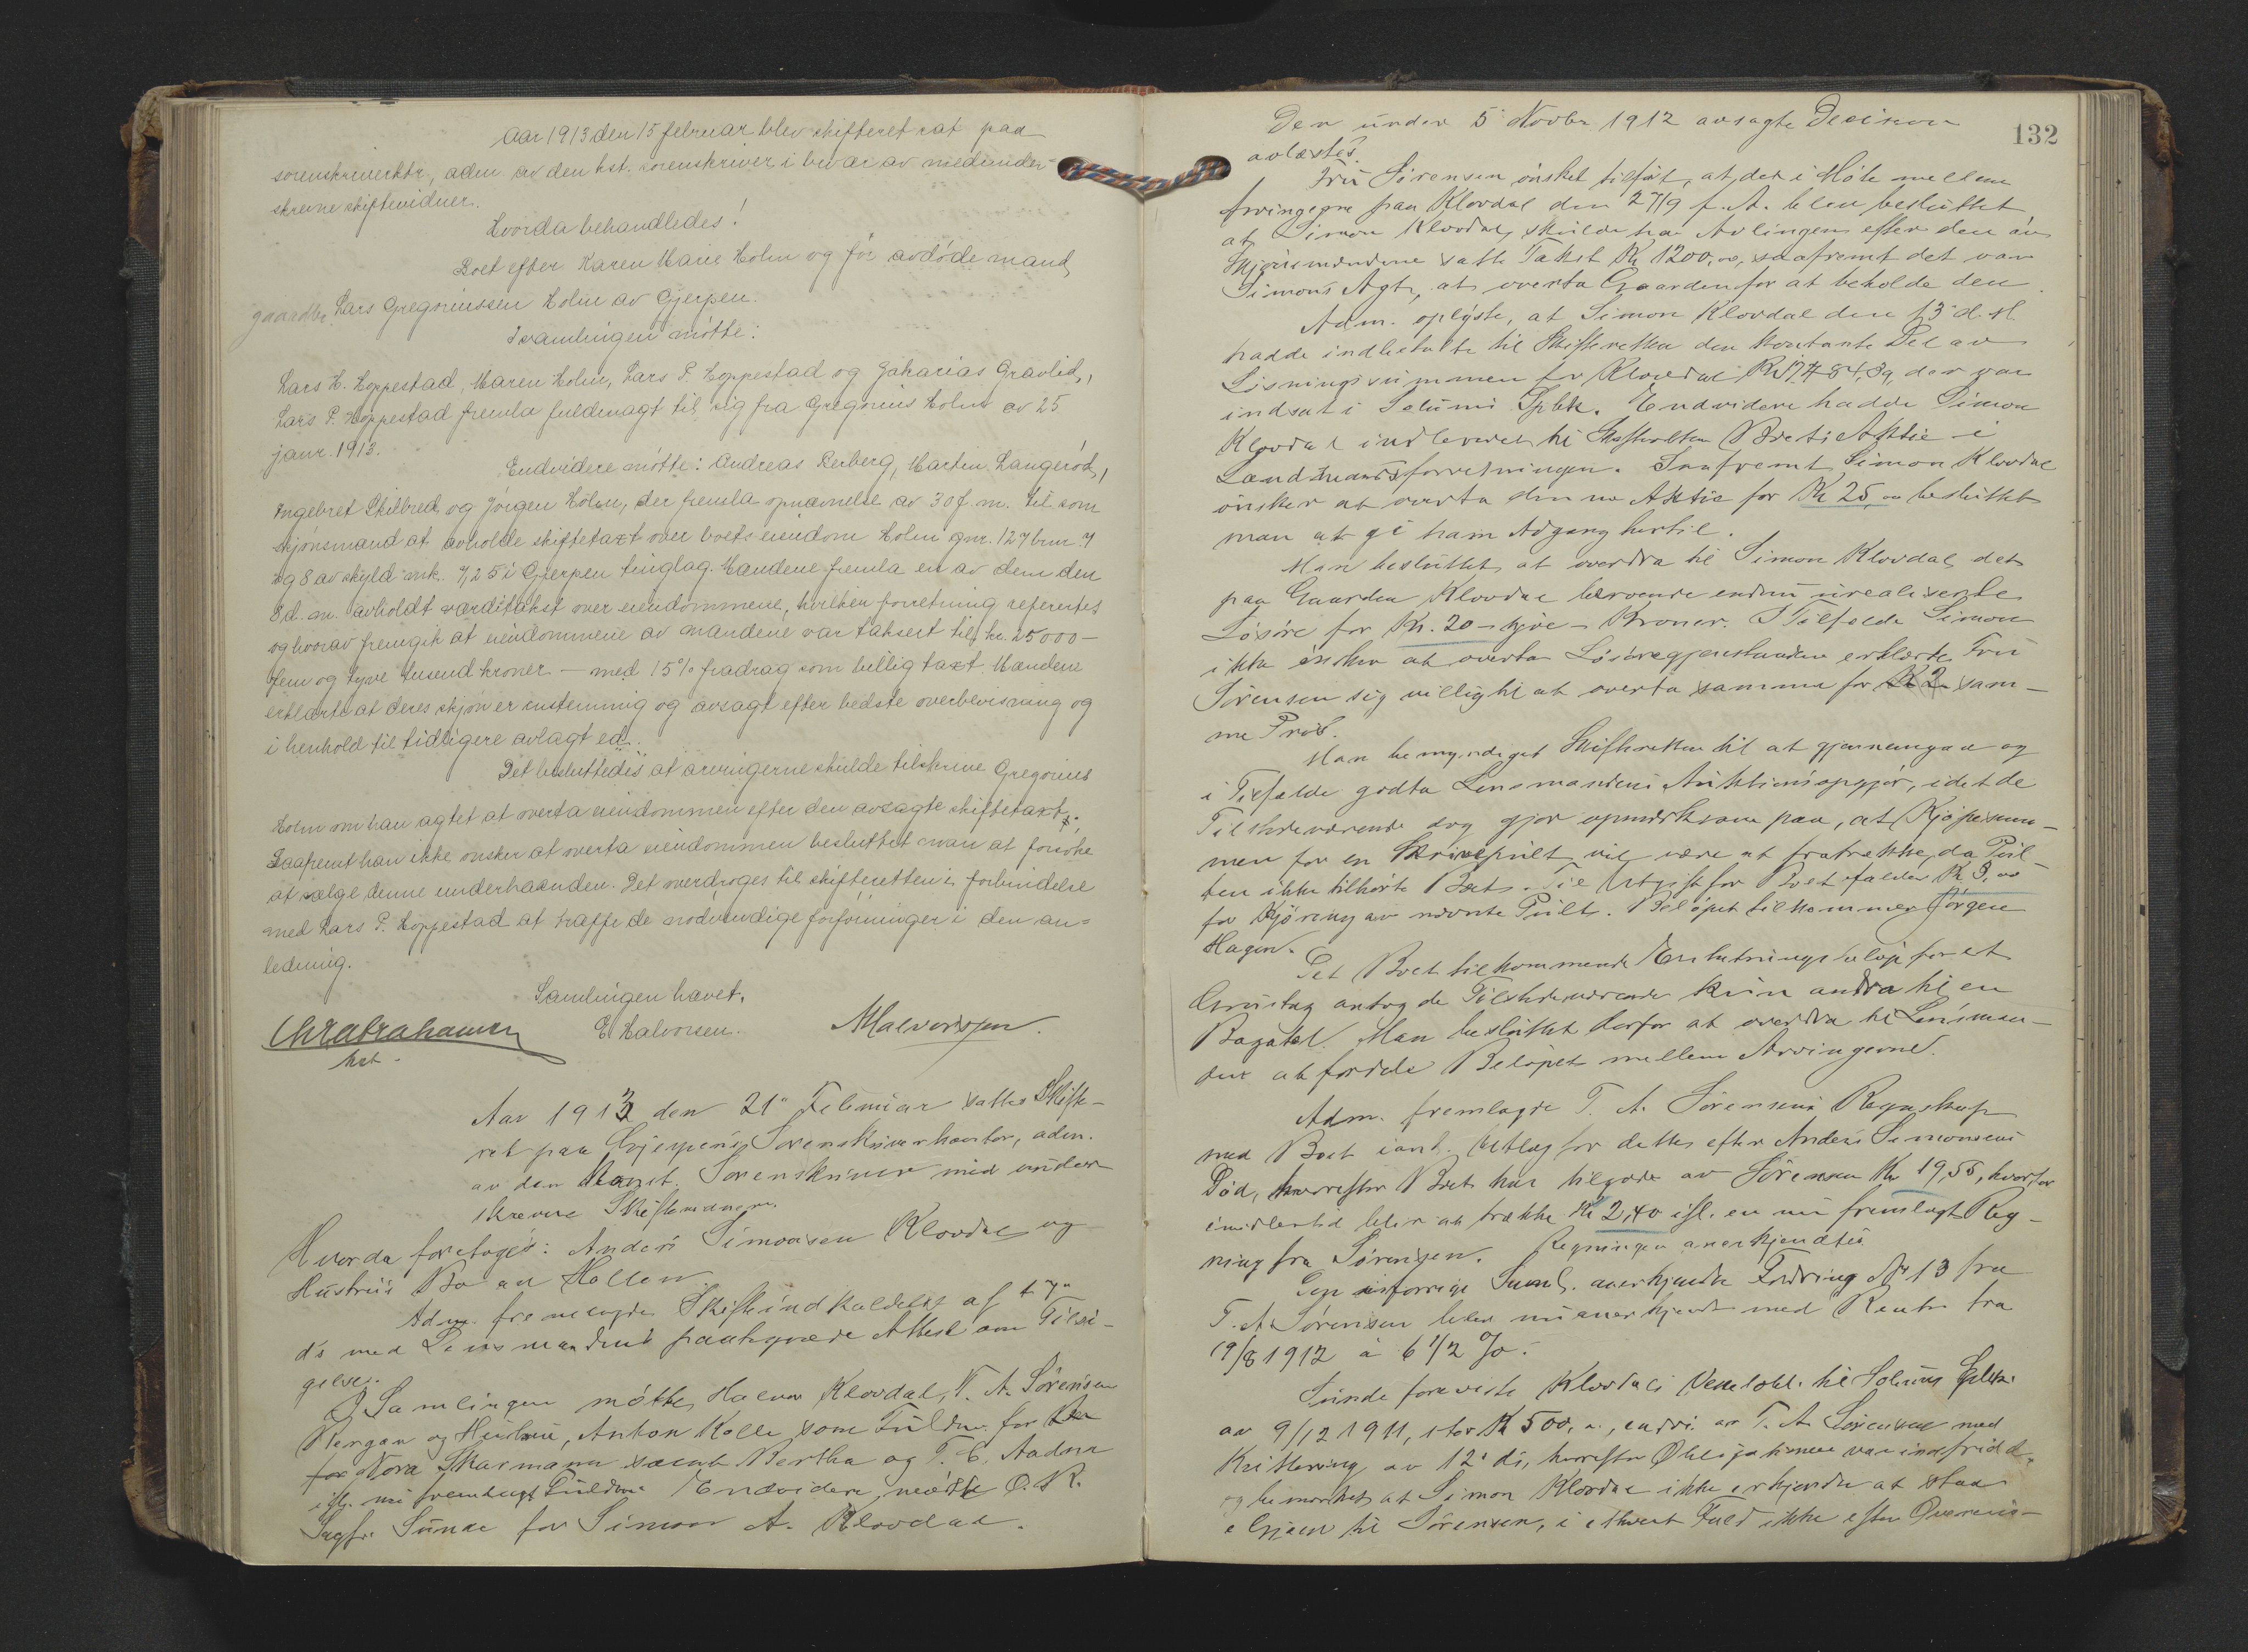 Aar 1913 den 15 februar blev skifteret sat paa
sorenskriverktr., adm av den kst. sorenskriver i bevær av medunder-
skrevne skiftevidner.
Hvorda behandledes!
Boet efter Karen Marie Holm og før avdøde mand,
gaardbr. Lars Gregoriussen Holm av Gjerpen.
I samlingen møtte:
Lars H. Hoppestad, Maren Holm, Lars P. Hoppestad og Zakarias Gravlid,
Lars P. Hoppestad fremla fuldmagt til sig fra Gregorius Holm av 25
janr. 1913.
Endvidere møtte: Andreas Berberg, Marten Langerød,
Ingebret Skilbred og Jørgen Holm, der fremla opnævnelse av 30 f. m. til som
skjønsmænd at avholde skiftetaxt over boets eiendom Holm gnr. 127 brnr 7
og 8 av skyld mk. 7,25 i Gjerpen tinglag. Mændene fremla en av dem den
8 d. m. avholdt værditakst over eiendommene, hvilken forretning refereres
og hvorav fremgik at eiendommene av mændene var taksert til kr. 25000 -
fem og tyve tusend kroner - med 15% fradrag som billig taxt. Mændene
erklærte at deres skjøn er enstemmig og avsagt efter bedste overbevisning og
i henhold til tidligere avlagt ed.
Det besluttedes at arvingerne skulde tilskrive Gregorius
Holm om han agtet at overta eiendommen efter den avsagte skiftetaxt;
Saafremt han ikke ønsker at overta eiendommen besluttet man at forsøke
at sælge denne underhaanden. Det overdroges til skifteretten i forbindelse
med Lars P. Hoppestad at træffe de nødvendige forføininger i den an=
ledning.
Samlingen hævet.
Chr Abrahamsen E Halvorsen. M Halvorsen.
kst.
Aar 1913 den 21" Februar sattes Skifte-
ret paa Gjerpens Sorenskriverkontor, adm.
av den Konst. Sorenskriver med under-
skrevne Skiftemænd.
Hvorda foretoges: Anders Simonsen Klovdal og
Hustrus Bo av Hollen.
Adm. fremlagde Skifteindkaldelse af 17"
ds med Lensmandens paategnede Attest om Tilsi-
gelse.
I Samlingen møtte, Halvor Klovdal, T. A. Sørensen
Bergan og Hustru, Anton Kolle som Fuldm. for
for Nora Skarmann samt Bertha og T. C. Aadne
iflg. nu fremlagt Fuldm. Endvidere møtte O. R.
Sagfr. Sunde for Simon A. Klovdal.
132
Den under 5' Novbr 1912 avsagte Decision
avlæstes.
Fru Sørensen ønsket tilført, at det i Møte mellem
Arvingerne paa Klovdal den 27/9 f. A. blev besluttet
at Simon Klovdal skulde ha Avlingen efter den av
Skjønsmændene satte Takst Kr 1200,00, saafremt det var
Simons Agt, at overta Gaarden for at beholde den.
Adm. oplyste, at Simon Klovdal den 13' d. M.
hadde indbetalt til Skifteretten den kontante Del av
Løsningssummen for Klovdal der var
indsat i Solums Spbk. Endvidere hadde Simon
Klovdal indleveret til Skifteretten Boets Aktie i
Landhandsforretningen. Saafremt Simon Klovdal
ønsker at overta denne Aktie for Kr 25,00 besluttet
man at gi ham Adgang hertil.
Man besluttet at overdra til Simon Klovdal det
paa Gaarden Klovdal beroende endnu urealiserte
Løsøre for Kr. 20 - tyve - Kroner. I Tilfelde Simon
ikke ønsker at overta Løsøregjenstandene erklærte Fru
Sørensen sig villig til at overta samme for sam-
me Pris.
Man bemyndiget Skifteretten til at gjennemgaa og
i Tilfelde godta Lensmandens Auktionsopgjør, idet de
Tilstedeværende dog gjør opmerksom paa, at Kjøpesum-
men for en Skrivepult vil være at fratrekke, da Pul-
ten ikke tilhørte Boet. Til Utgift for Boet falder Kr 3,00
for Kjøring av nevnte Pult. Beløpet tilkommer Jørgen
Hagen.
Det Boet tilkommende Erstatningsbeløp for et
Grustag antog de Tilstedeværende kun andra til en
Bagatel. Man besluttet derfor at overdra til Lensman-
den at fordele Beløpet mellem Arvingerne.
Adm. fremlagde T. A. Sørensens Regnskap
med Boet ianl. Utlæg for dette efter Anders Simonsens
Død, hvorefter Boet har tilgode av Sørensen Kr 19,55, hvorfor
imidlertid blir at trække Kr 2,40 ifl. en nu fremlagt Reg-
ning fra Sørensen. Regningen anerkjendtes
Den i forrige Saml. anerkjendte Fordring No 13 fra
T. A. Sørensen blev nu anerkjendt med Rente fra
19/8 1912 à 6 1/2 %.
Sunde foreviste Klovdals Vekselobl. til Solums Spbk.
av 9/12 1911, stor Kr 500,00, endos. av T. A. Sørensen med
Kvittering av 12' ds, hvorefter Obligationen var indfridd,
og bemerket, at Simon Klovdal ikke erkjendte at staa
i Gjæld til Sørensen, i ethvert Fald ikke efter Overens-